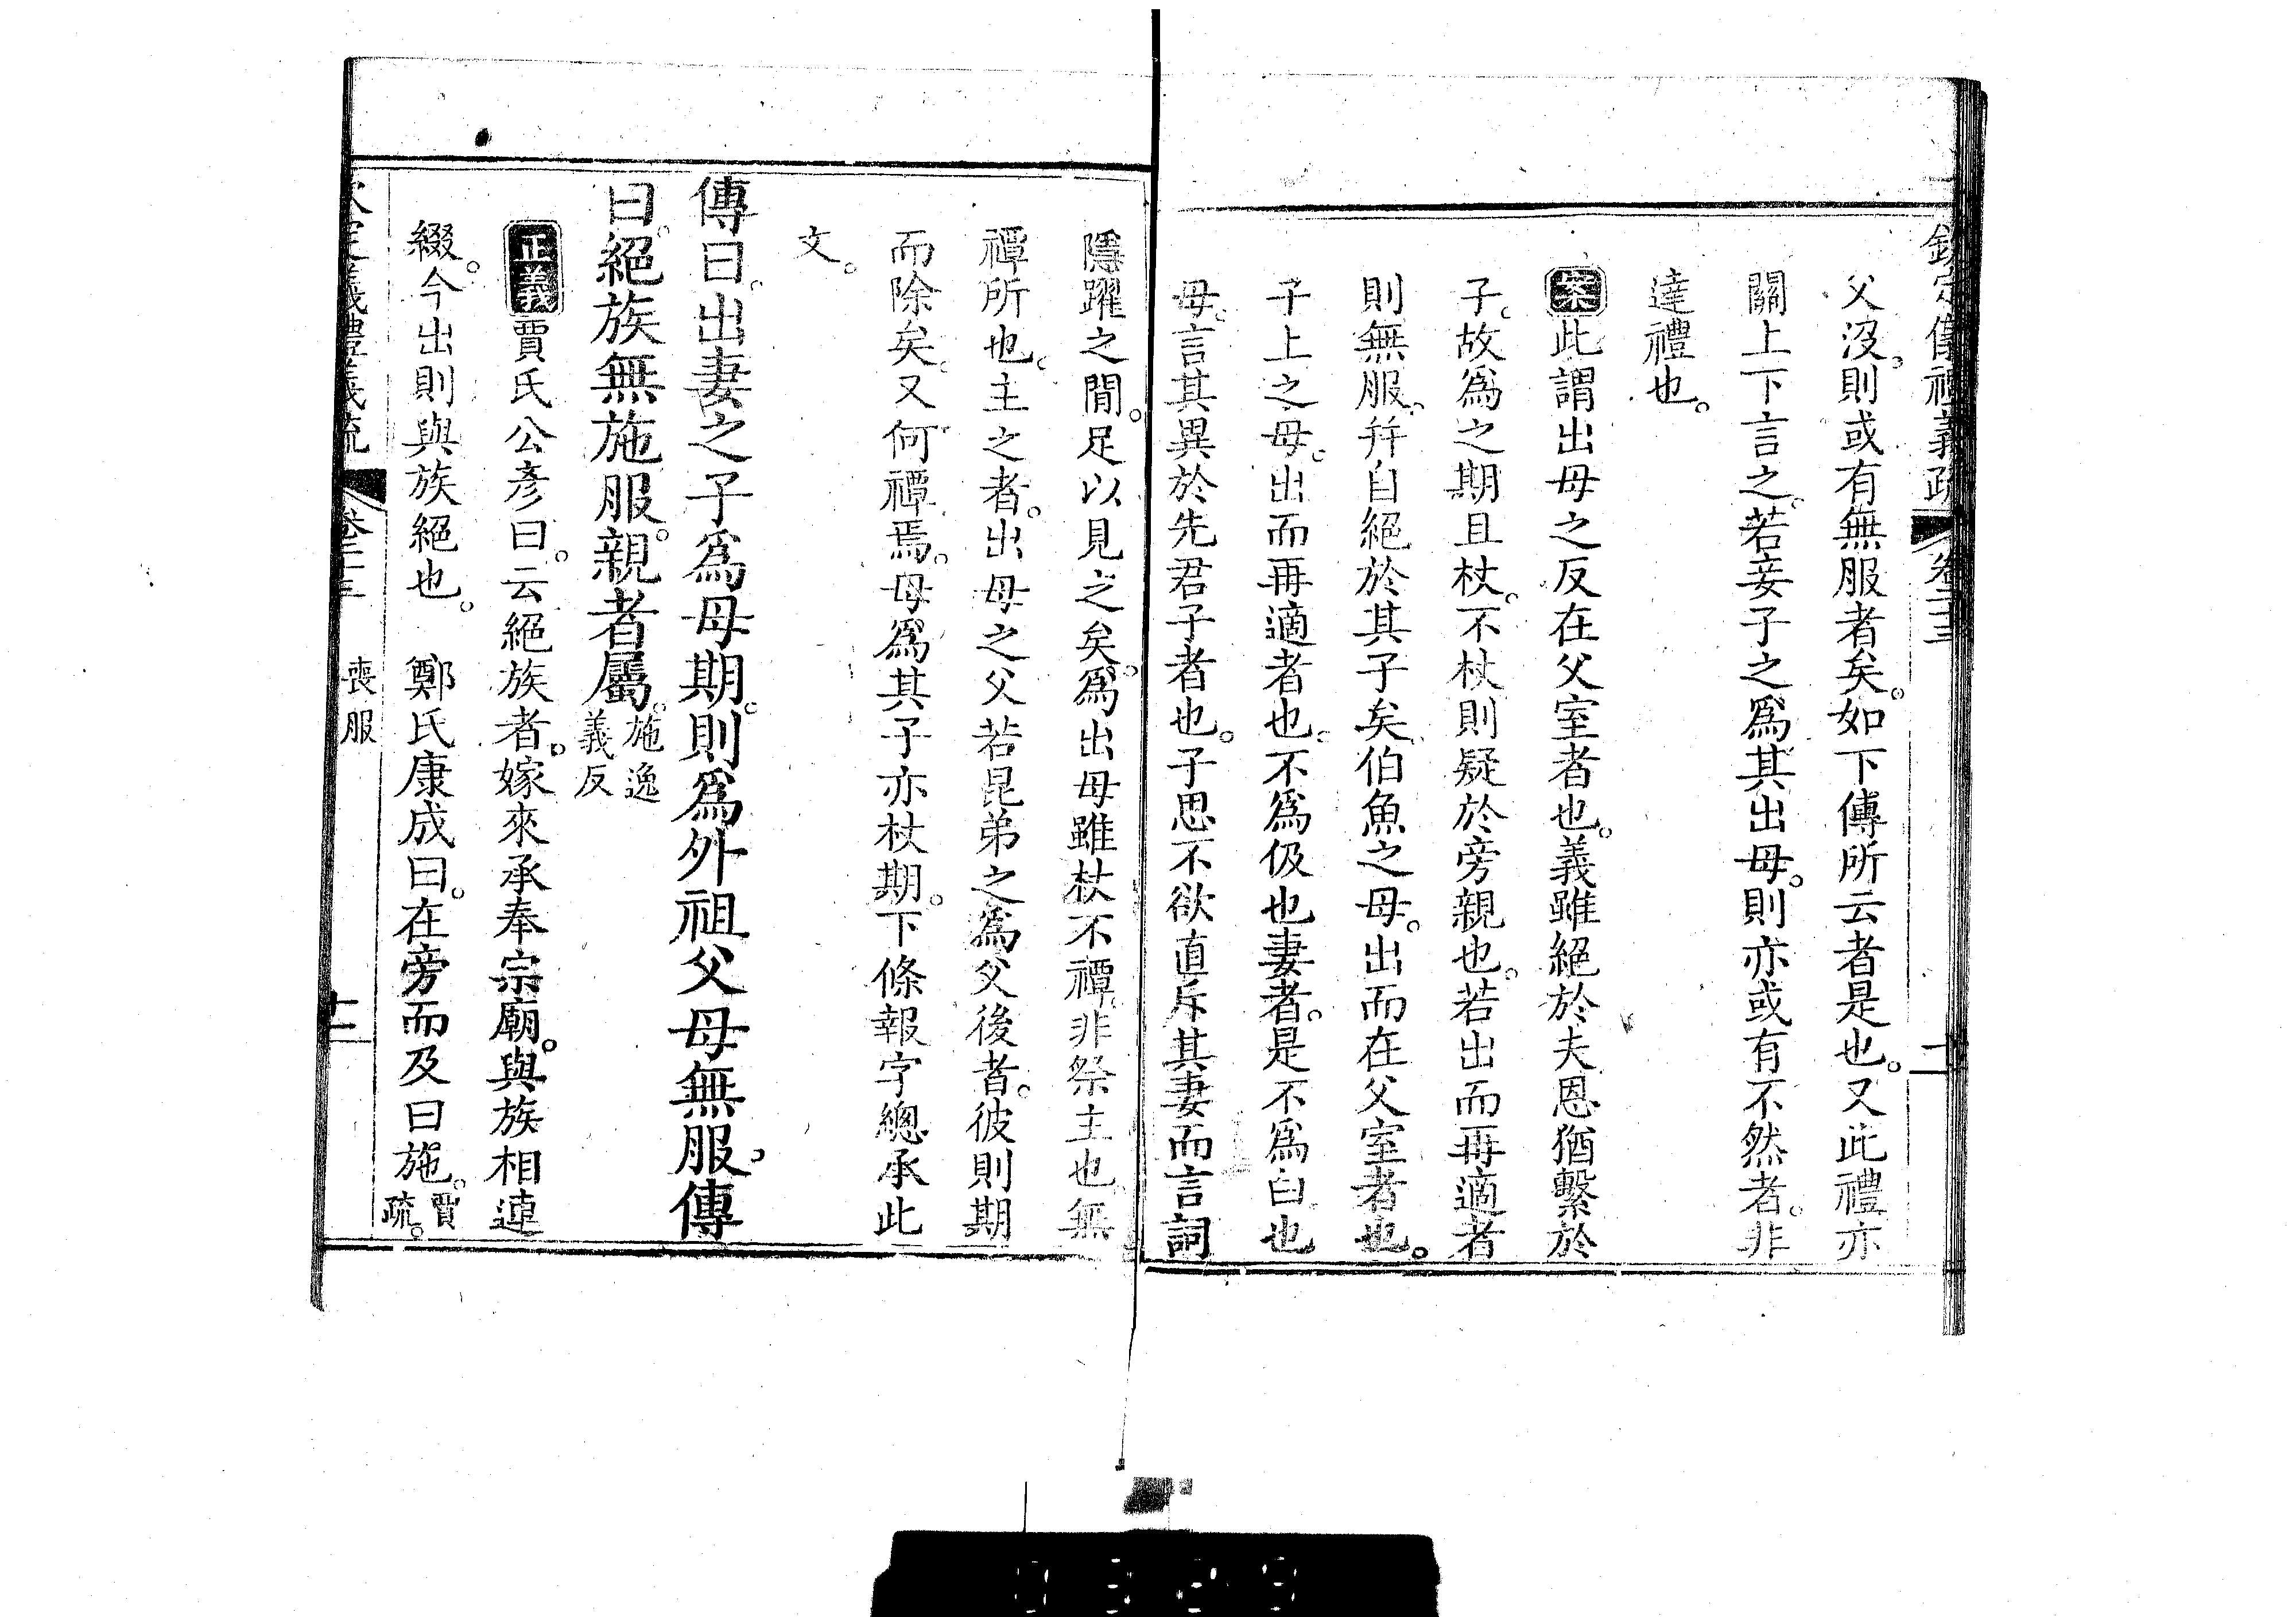 欽定儀禮義疏 卷二十三
父沒則或有無服者矣。如下傳所云者是也。又此禮亦
關上下言之。若妾子之爲其出母。則亦或有不然者。非
達禮也。
案此謂出母之反在父室者也。義雖絕於夫恩猶繫於
子。故爲之期且杖。不杖則疑於旁親也。若出而再適者
則無服。幷自絕於其子矣。伯魚之母。出而在父室者也。
子上之母。出而再適者也。不爲伋也妻者。是不爲白也
母。言其異於先君子者也。子思不欲直斥其妻而言詞
隱躍之閒。足以見之矣。爲出母雖杖不禫。非祭主也無
禫所也。主之者。出母之父若昆弟之爲父後者。彼則期
而除矣。又何禫焉。母爲其子亦杖期。下條報字總承此
文。
傳曰。出妻之子爲母期。則爲外祖父母無服。傳
曰。絕族無施服。親者屬。施逸義反
正義賈氏公彥曰。云絕族者。嫁來承奉宗廟。與族相連
綴。今出則與族絕也。 鄭氏康成曰。在旁而及曰施。賈疏。
欽定儀禮義疏 卷二十三 喪服 十二